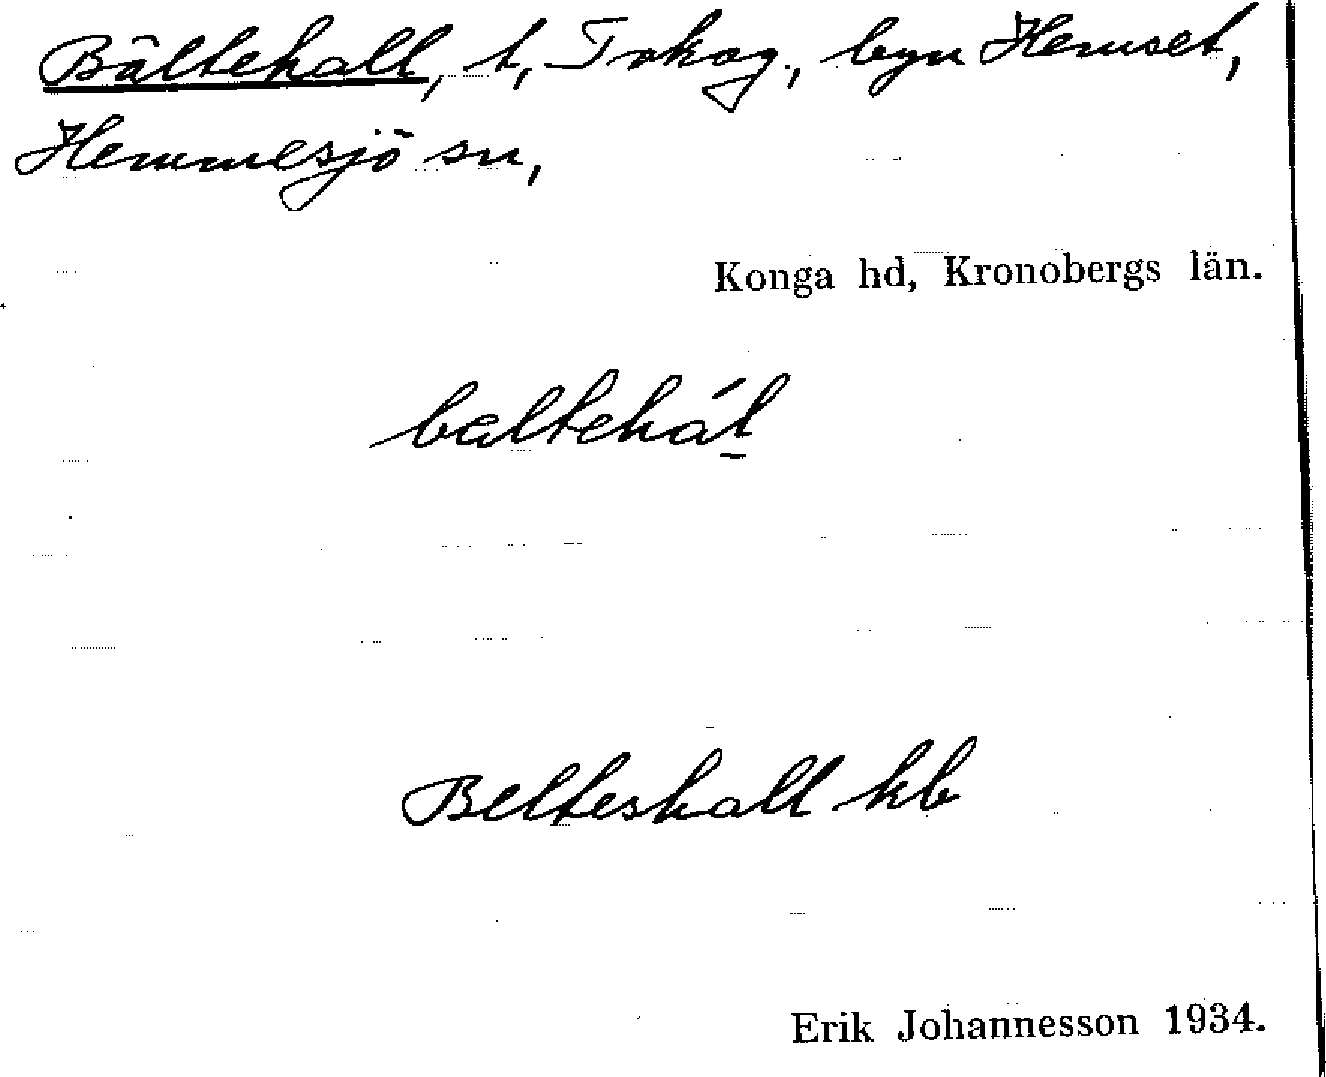 Bältehall, t, Tokag., byn Hemset,
Hemmesjö sn,
Konga hd, Kronobergs län.
bæltehál
Belteshall kb
Erik Johannesson 1934.